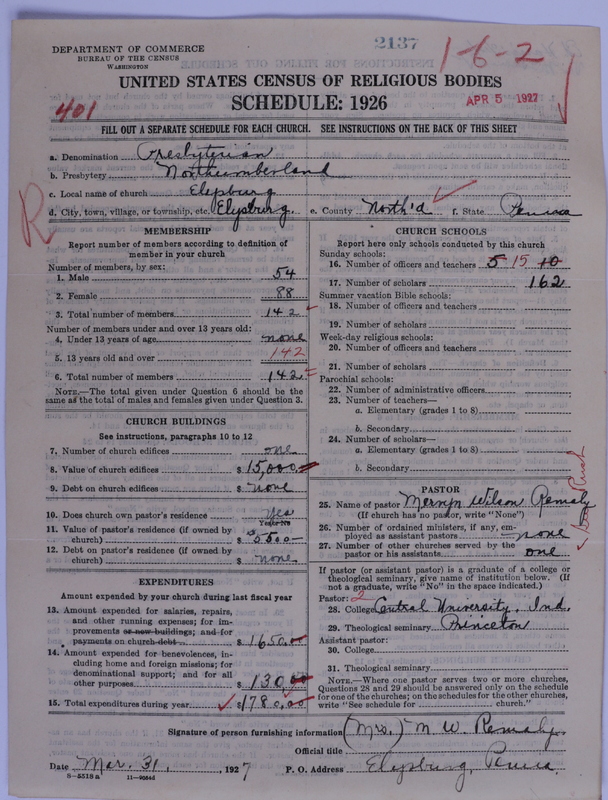 2137
1-6-2
DEPARTMENT OF COMMERCE
BUREAU OF THE CENSUS
WASHINGTON
UNITED STATES CENSUS OF RELIGIOUS BODIES
SCHEDULE: 1926
401
APR 5 1927
FILL OUT A SEPARATE SCHEDULE FOR EACH CHURCH. SEE INSTRUCTIONS ON THE BACK OF THIS SHEET
a. Denomination Presbyterian
b. Presbytery Northumberland
c. Local name of church Elysburg
d. City, town, village, or township, etc. Elysburg e. County North'd f. State Penna
R
MEMBERSHIP
Report number of members according to definition of
member in your church
Number of members, by sex:
1. Male 54
2. Female 88
3. Total number of members 142
Number of members under and over 13 years old:
4. Under 13 years of age none
5. 13 years old and over 142
6. Total number of members 142
NOTE.—The total given under Question 6 should be the
same as the total of males and females given under Question 3.
CHURCH BUILDINGS
See instructions, paragraphs 10 to 12
7. Number of church edifices one
8. Value of church edifices $ 15,000
9. Debt on church edifices $ none
10. Does church own pastor's residence yes
Yes or No
11. Value of pastor's residence (if owned by
church) $ 5500
12. Debt on pastor's residence (if owned by
church) $ none
EXPENDITURES
Amount expended by your church during last fiscal year
13. Amount expended for salaries, repairs,
and other running expenses; for im-
provements or new buildings; and for
payments on church debt $ 1650.
14. Amount expended for benevolences, in-
cluding home and foreign missions; for
denominational support; and for all
other purposes $ 130.00
15. Total expenditures during year $ 1780.00
CHURCH SCHOOLS
Report here only schools conducted by this church
Sunday schools:
16. Number of officers and teachers 5 15 10
17. Number of scholars 162
Summer vacation Bible schools:
18. Number of officers and teachers
19. Number of scholars
Week-day religious schools:
20. Number of officers and teachers
21. Number of scholars
Parochial schools:
22. Number of administrative officers
23. Number of teachers—
a. Elementary (grades 1 to 8)
b. Secondary
24. Number of scholars—
a. Elementary (grades 1 to 8)
b. Secondary
PASTOR
25. Name of pastor Mervyn Wilson Remaly
(If church has no pastor, write "None")
26. Number of ordained ministers, if any, em-
ployed as assistant pastors none
27. Number of other churches served by the
pastor or his assistants one
If pastor (or assistant pastor) is a graduate of a college or
theological seminary, give name of institution below. (If
not a graduate, write "No" in the space indicated.)
Pastor: 2
28. College Central University, Ind.
29. Theological seminary Princeton
Assistant pastor:
30. College
31. Theological seminary
NOTE.—Where one pastor serves two or more churches,
Questions 28 and 29 should be answered only on the schedule
for one of the churches; on the schedules for the other churches,
write "See schedule for church."
Signature of person furnishing information (Mrs.) M. W. Remaly
Official title
Date Mar. 31, 1927 P. O. Address Elysburg, Penna.
8—5518 a